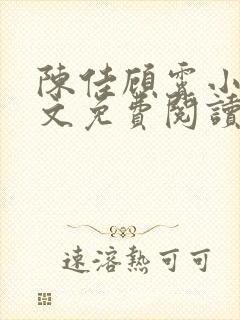 陳佳顧霆小
文免費閱讀
速溶熱可可